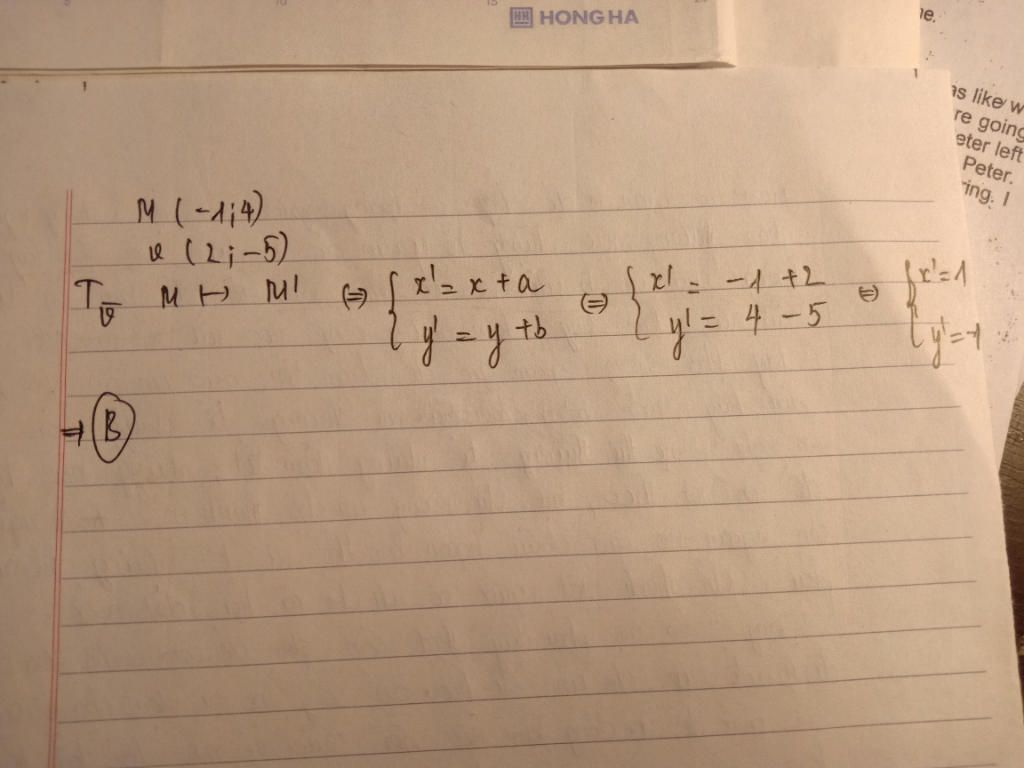 HONG HA
ne.
as like w
re going
eter left
Peter.
ring. I
M (-1;4)
v (2;-5)
T_v M ↦ M' ⇔ { x' = x + a ⇔ { x' = -1 + 2 ⇔ { x' = 1
y' = y + b y' = 4 - 5 y' = -1
⇒ B